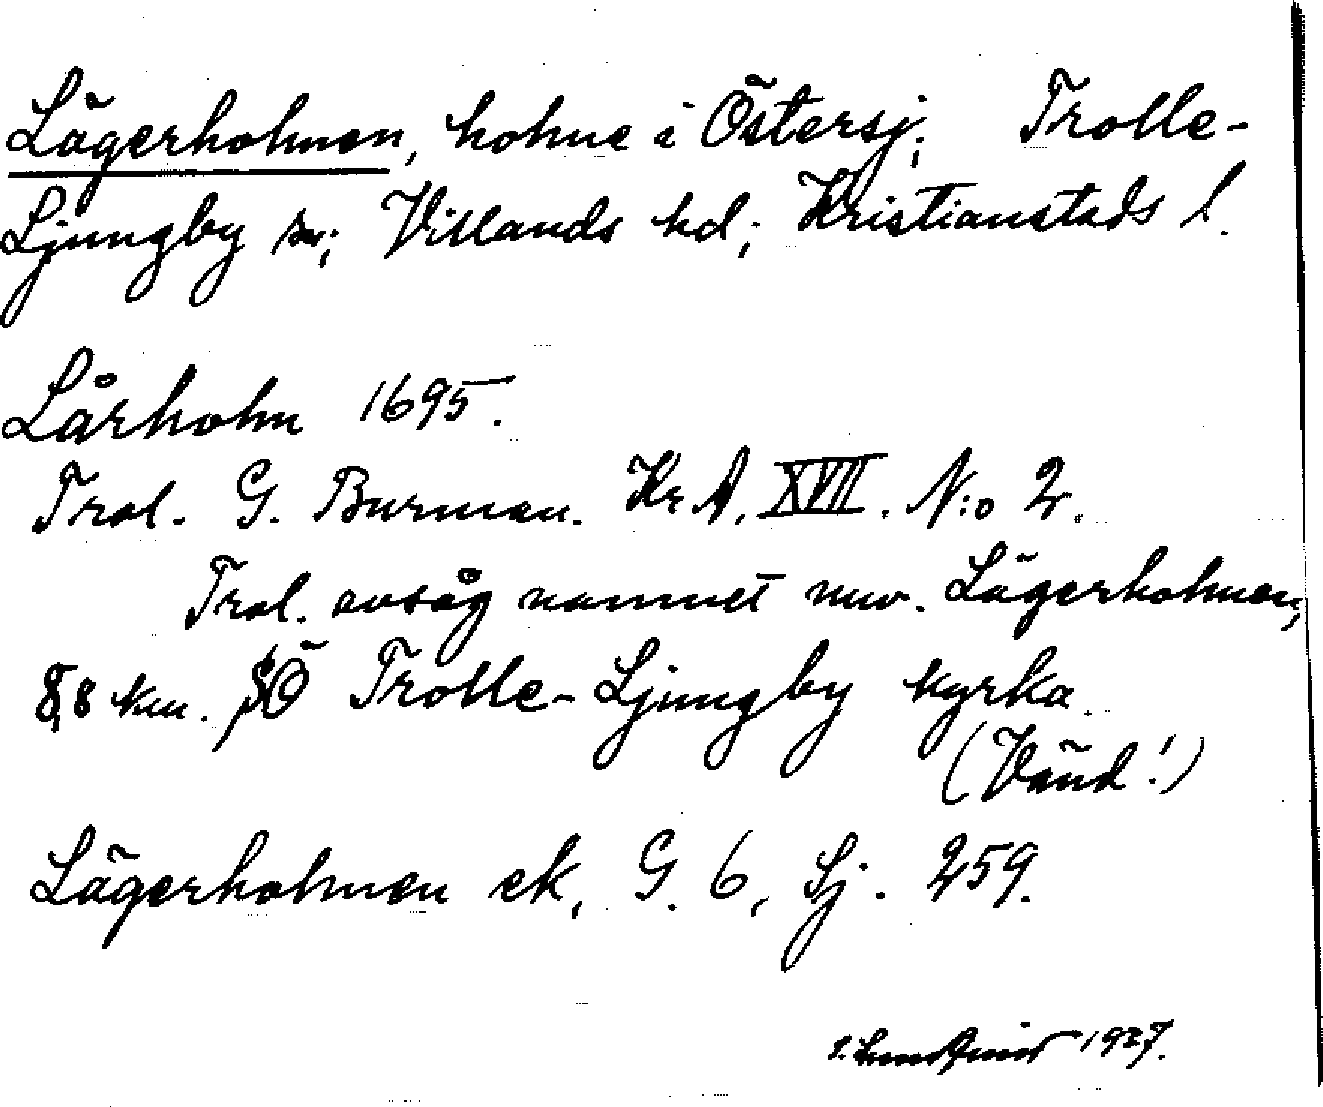 Lägerholmen, holme i Östersj; Trolle-
Ljungby sn; Villands hd; Kristianstads l.
Lårholm 1695.
Trol. G. Burman. Kr A. XVII. N:o 2.
Trol. avsåg namnet nuv. Lägerholmen,
8,8 km. SÖ Trolle-Ljungby kyrka
(Vänd!)
Lägerholmen ek, G. 6, Lj. 259.
1927.